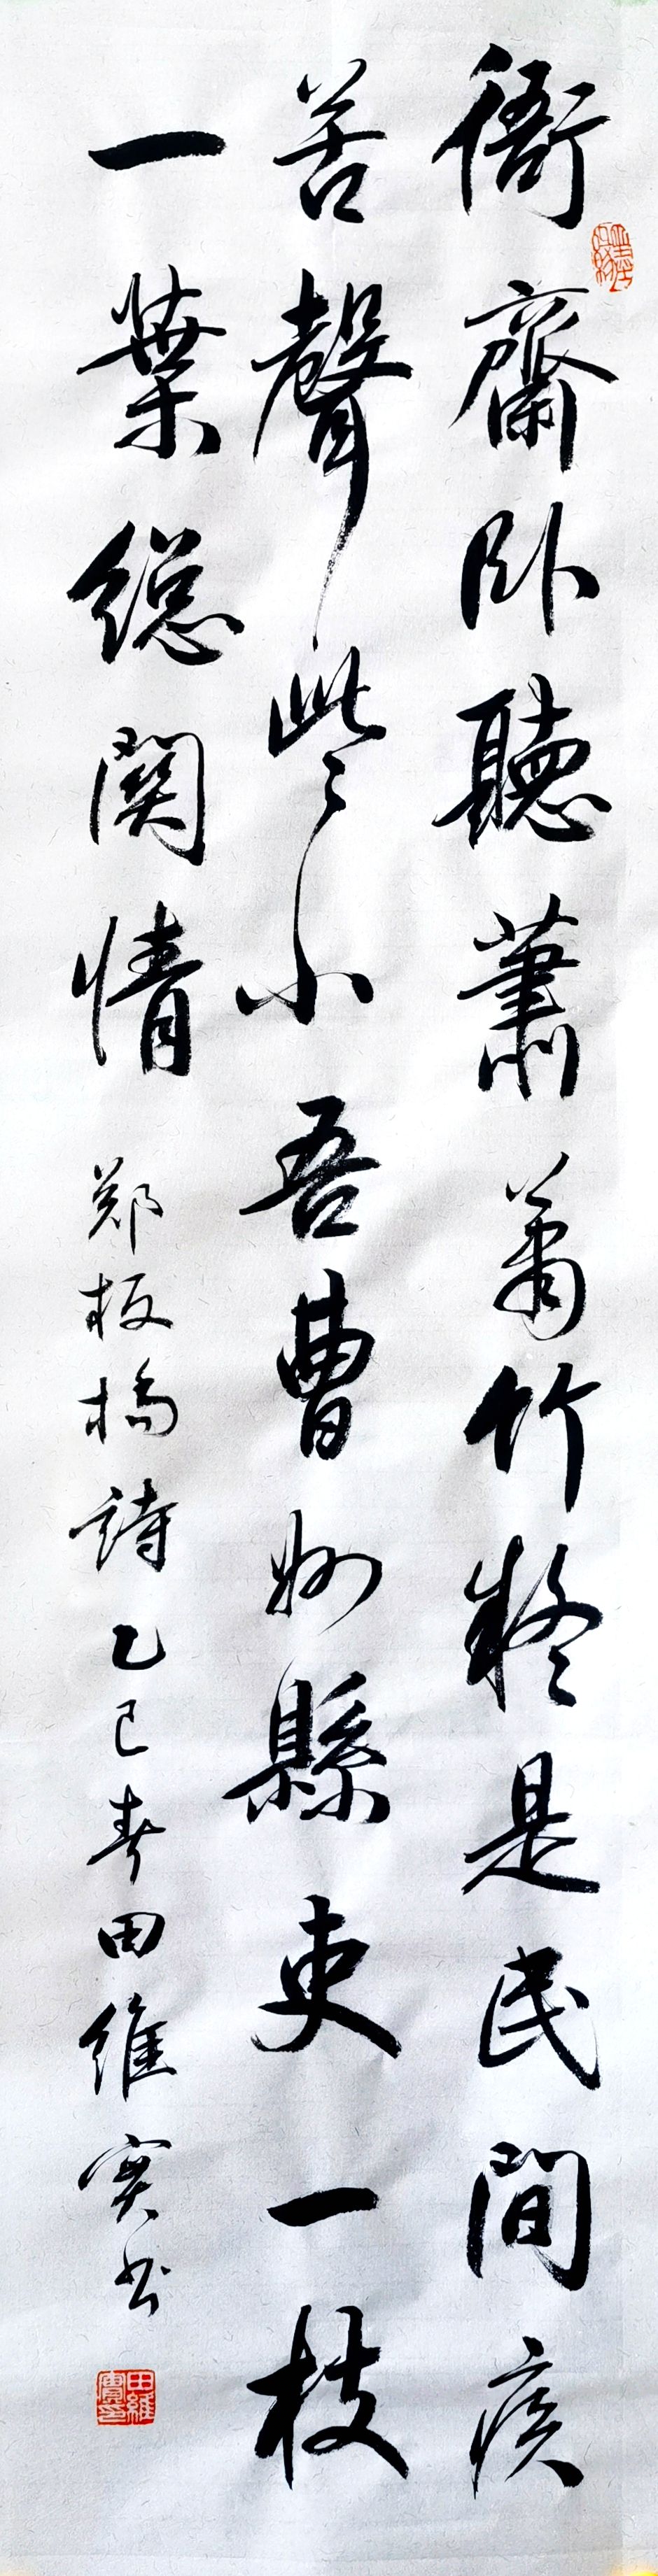 衙齋卧聽蕭蕭竹疑是民間疾
苦聲些小吾曹州縣吏一枝
一葉總關情 郑板橋詩 乙巳春田維实书
田維實印